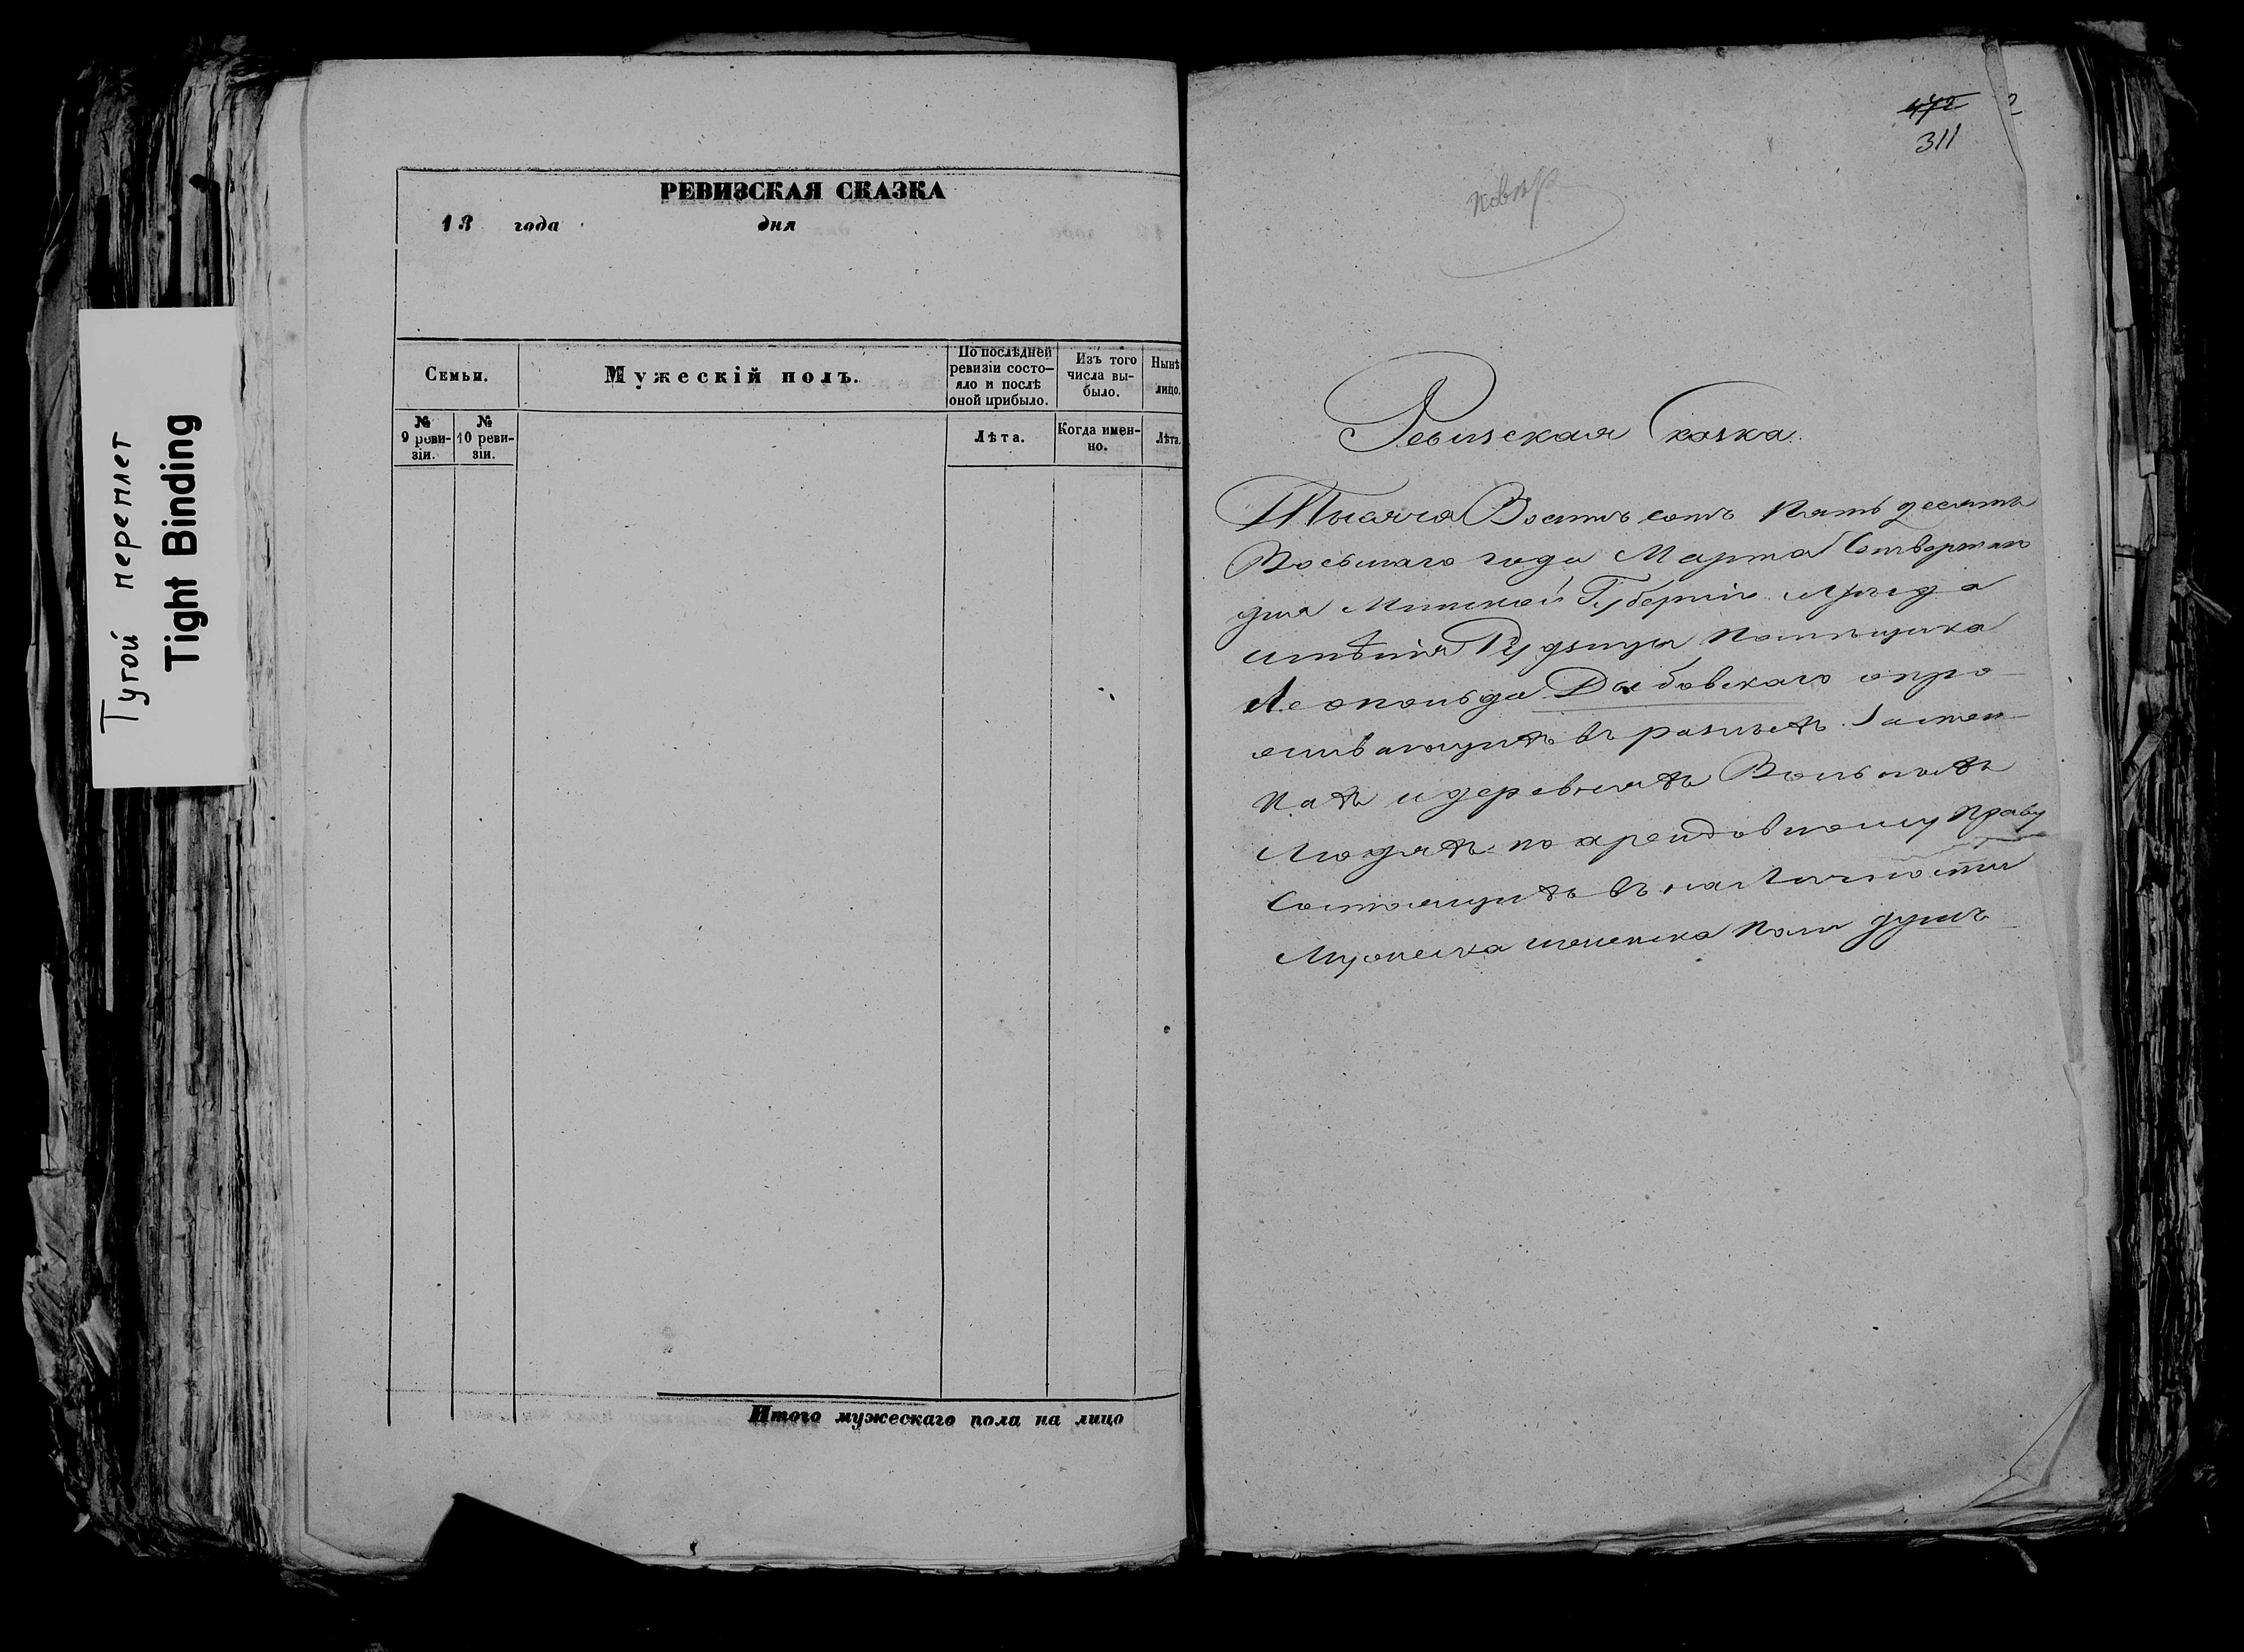 Тугой переплет
Tight Binding
РЕВИЗСКАЯ СКАЗКА
18 года дня
Семьи.
Мужескій полъ.
По послѣдней
ревизіи состо-
яло и послѣ
оной прибыло.
Изъ того
числа вы-
было.
Нынѣ
лицо.
№
9 реви-
зіи.
№
10 реви-
зіи.
Лѣта.
Когда имен-
но.
Лѣта.
Итого мужескаго пола на лицо
472 2
311
повѣр
Ревизская Сказка.
Тысяча Восемь сотъ Пятьдесятъ
Восьмаго года Марта
дня Минской Губерніи
имѣнія Помѣщика
Леопольда Домбовскаго о про
въ разныхъ Застен
кахъ и деревняхъ Вольныхъ
Людяхъ по арендовному праву
Состоящихъ въ наличности
Мужеска женска пола душъ